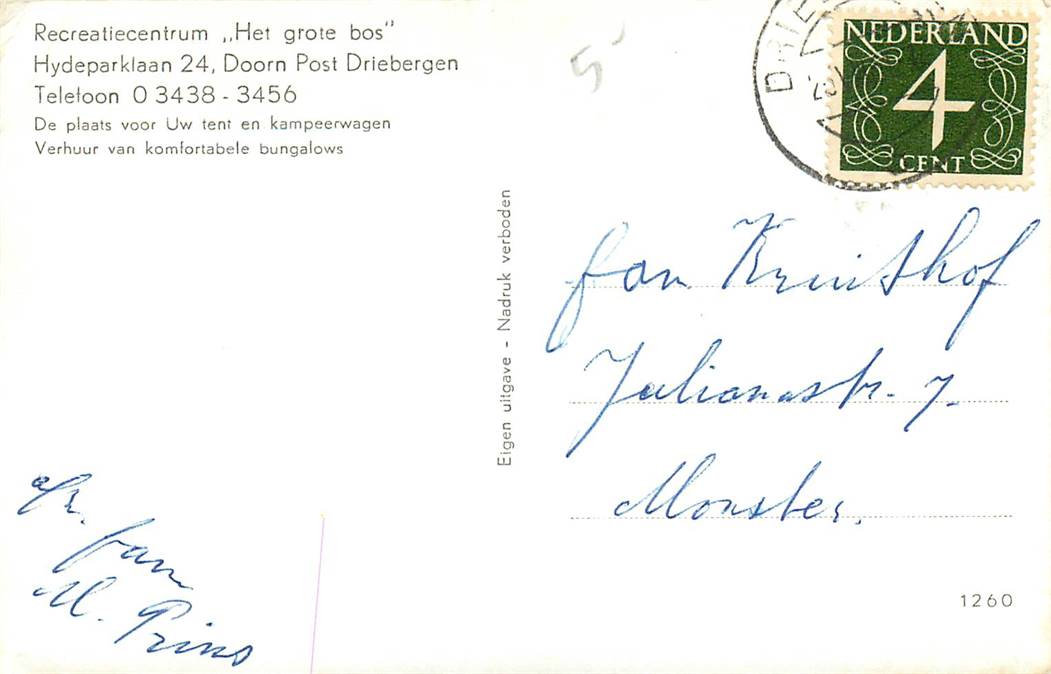 Recreatiecentrum „Het grote bos"
Hydeparklaan 24, Doorn Post Driebergen
Telefoon 0 3438 - 3456
De plaats voor Uw tent en kampeerwagen
Verhuur van komfortabele bungalows
5
DRIE
NEDERLAND
4
CENT
Eigen uitgave - Nadruk verboden
fam Kruithof
Julianastr. 7.
Monster.
afz. fam
M. Prins
1260